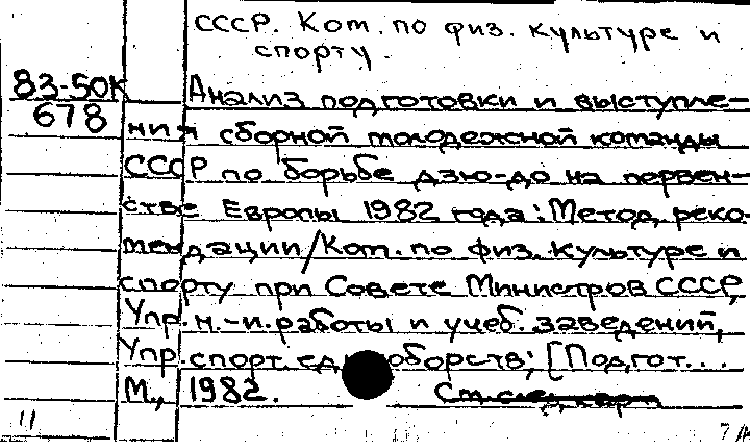 СССР. Ком. по физ. культуре и
спорту.
83-50К
678
Анализ подготовки и выступле-
ния сборной молодежной команды
СССР по борьбе дзю-до на первен-
стве Европы 1982 года: Метод. реко-
мендации/Ком. по физ. культуре и
спорту при Совете Министров СССР,
Упр. н.-и. работы и учеб. заведений,
Упр. спорт. единоборств; [Подгот...
М., 1982. См. след. карт
11